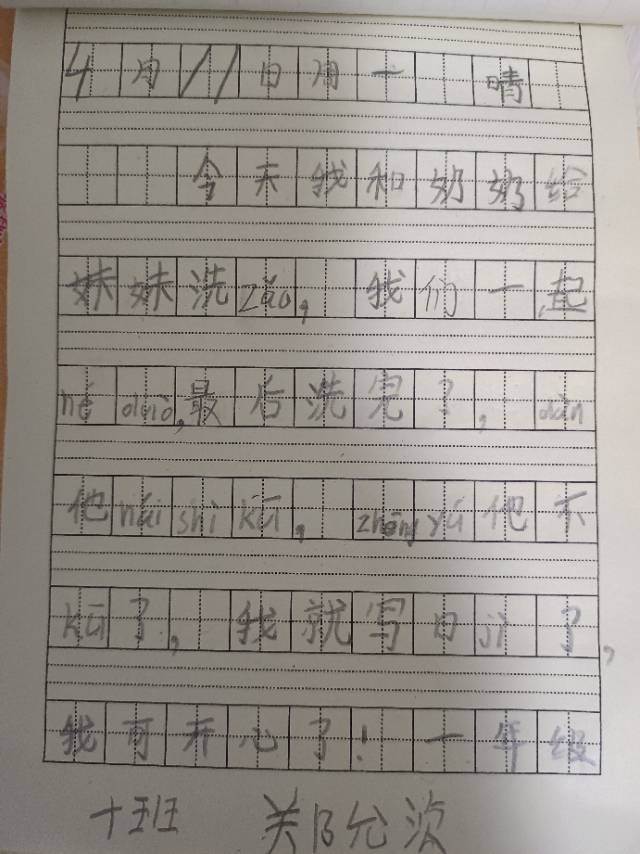 4月11日周一 晴
今天我和奶奶给
妹妹洗zǎo,我们一起
hé duò,最后洗完了,dàn
他hái shì kū,zhōng yú他不
kū了,我就写日jì了,
我可开心了!一年级
十班 郑允